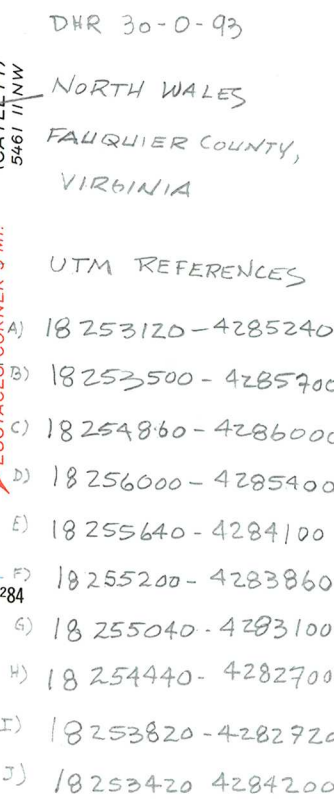 DHR 30-0-93
NORTH WALES
FAUQUIER COUNTY,
VIRGINIA
UTM REFERENCES
A) 18 253120 - 4285240
B) 18 253500 - 4285700
C) 18 254860 - 4286000
D) 18 256000 - 4285400
E) 18 255640 - 4284100
F) 18 255200 - 4283860
G) 18 255040 - 4283100
H) 18 254440 - 4282700
I) 18 253820 - 4282720
J) 18 253420 4284200
5461 II NW
284